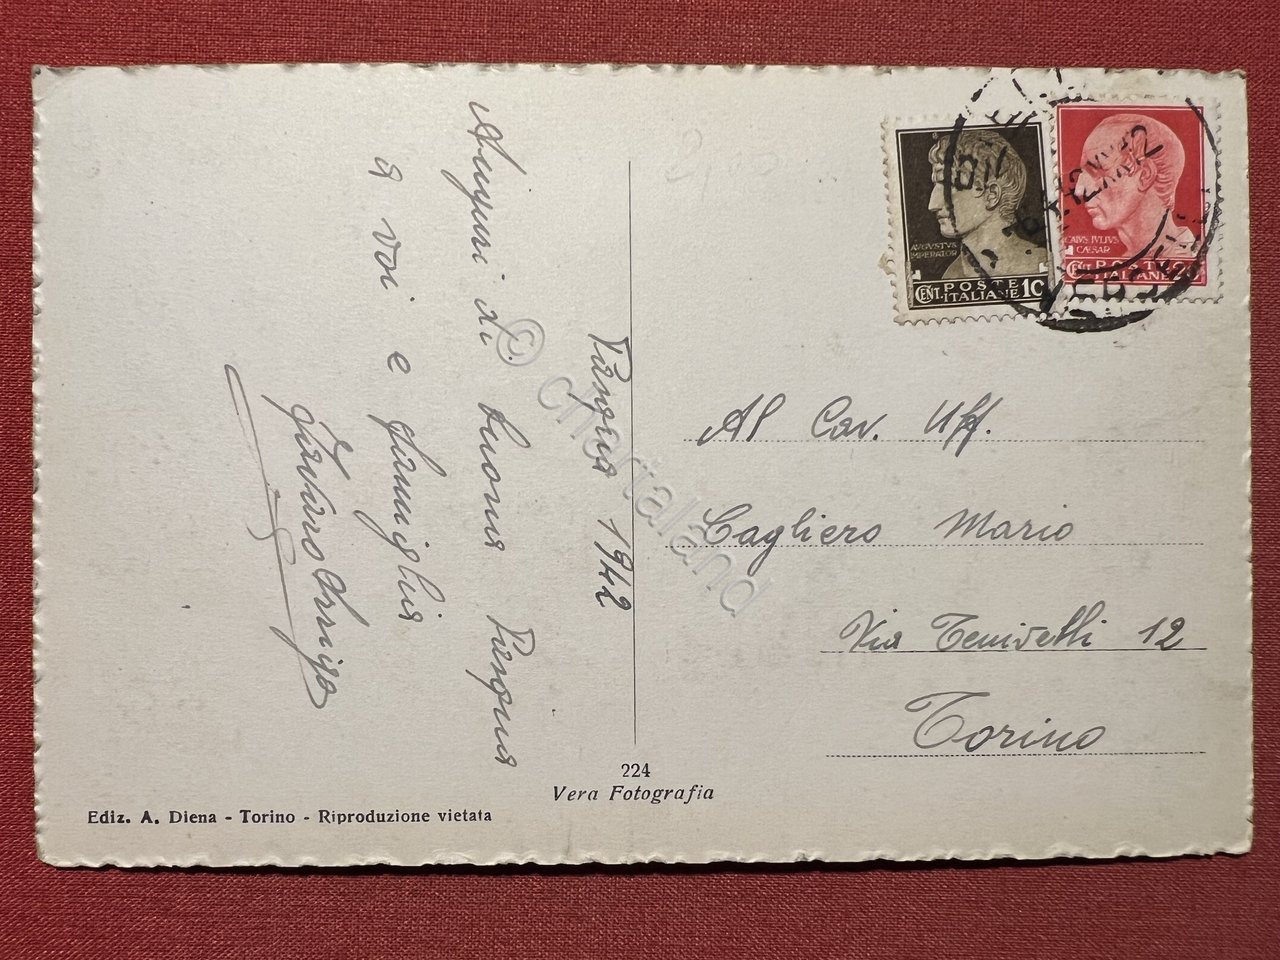 Pasqua 1942
Auguri di buona Pasqua
a voi e famiglia
Arrigo
Al Cav. Uff.
Cagliero Mario
Via Tenivelli 12
Torino
AUGVSTVS
IMPERATOR
CENT. POSTE
ITALIANE 10
CAIVS IVLIVS
CÆSAR
CENT. POSTE
ITALIANE 20
224
Vera Fotografia
Ediz. A. Diena - Torino - Riproduzione vietata
© cartaland